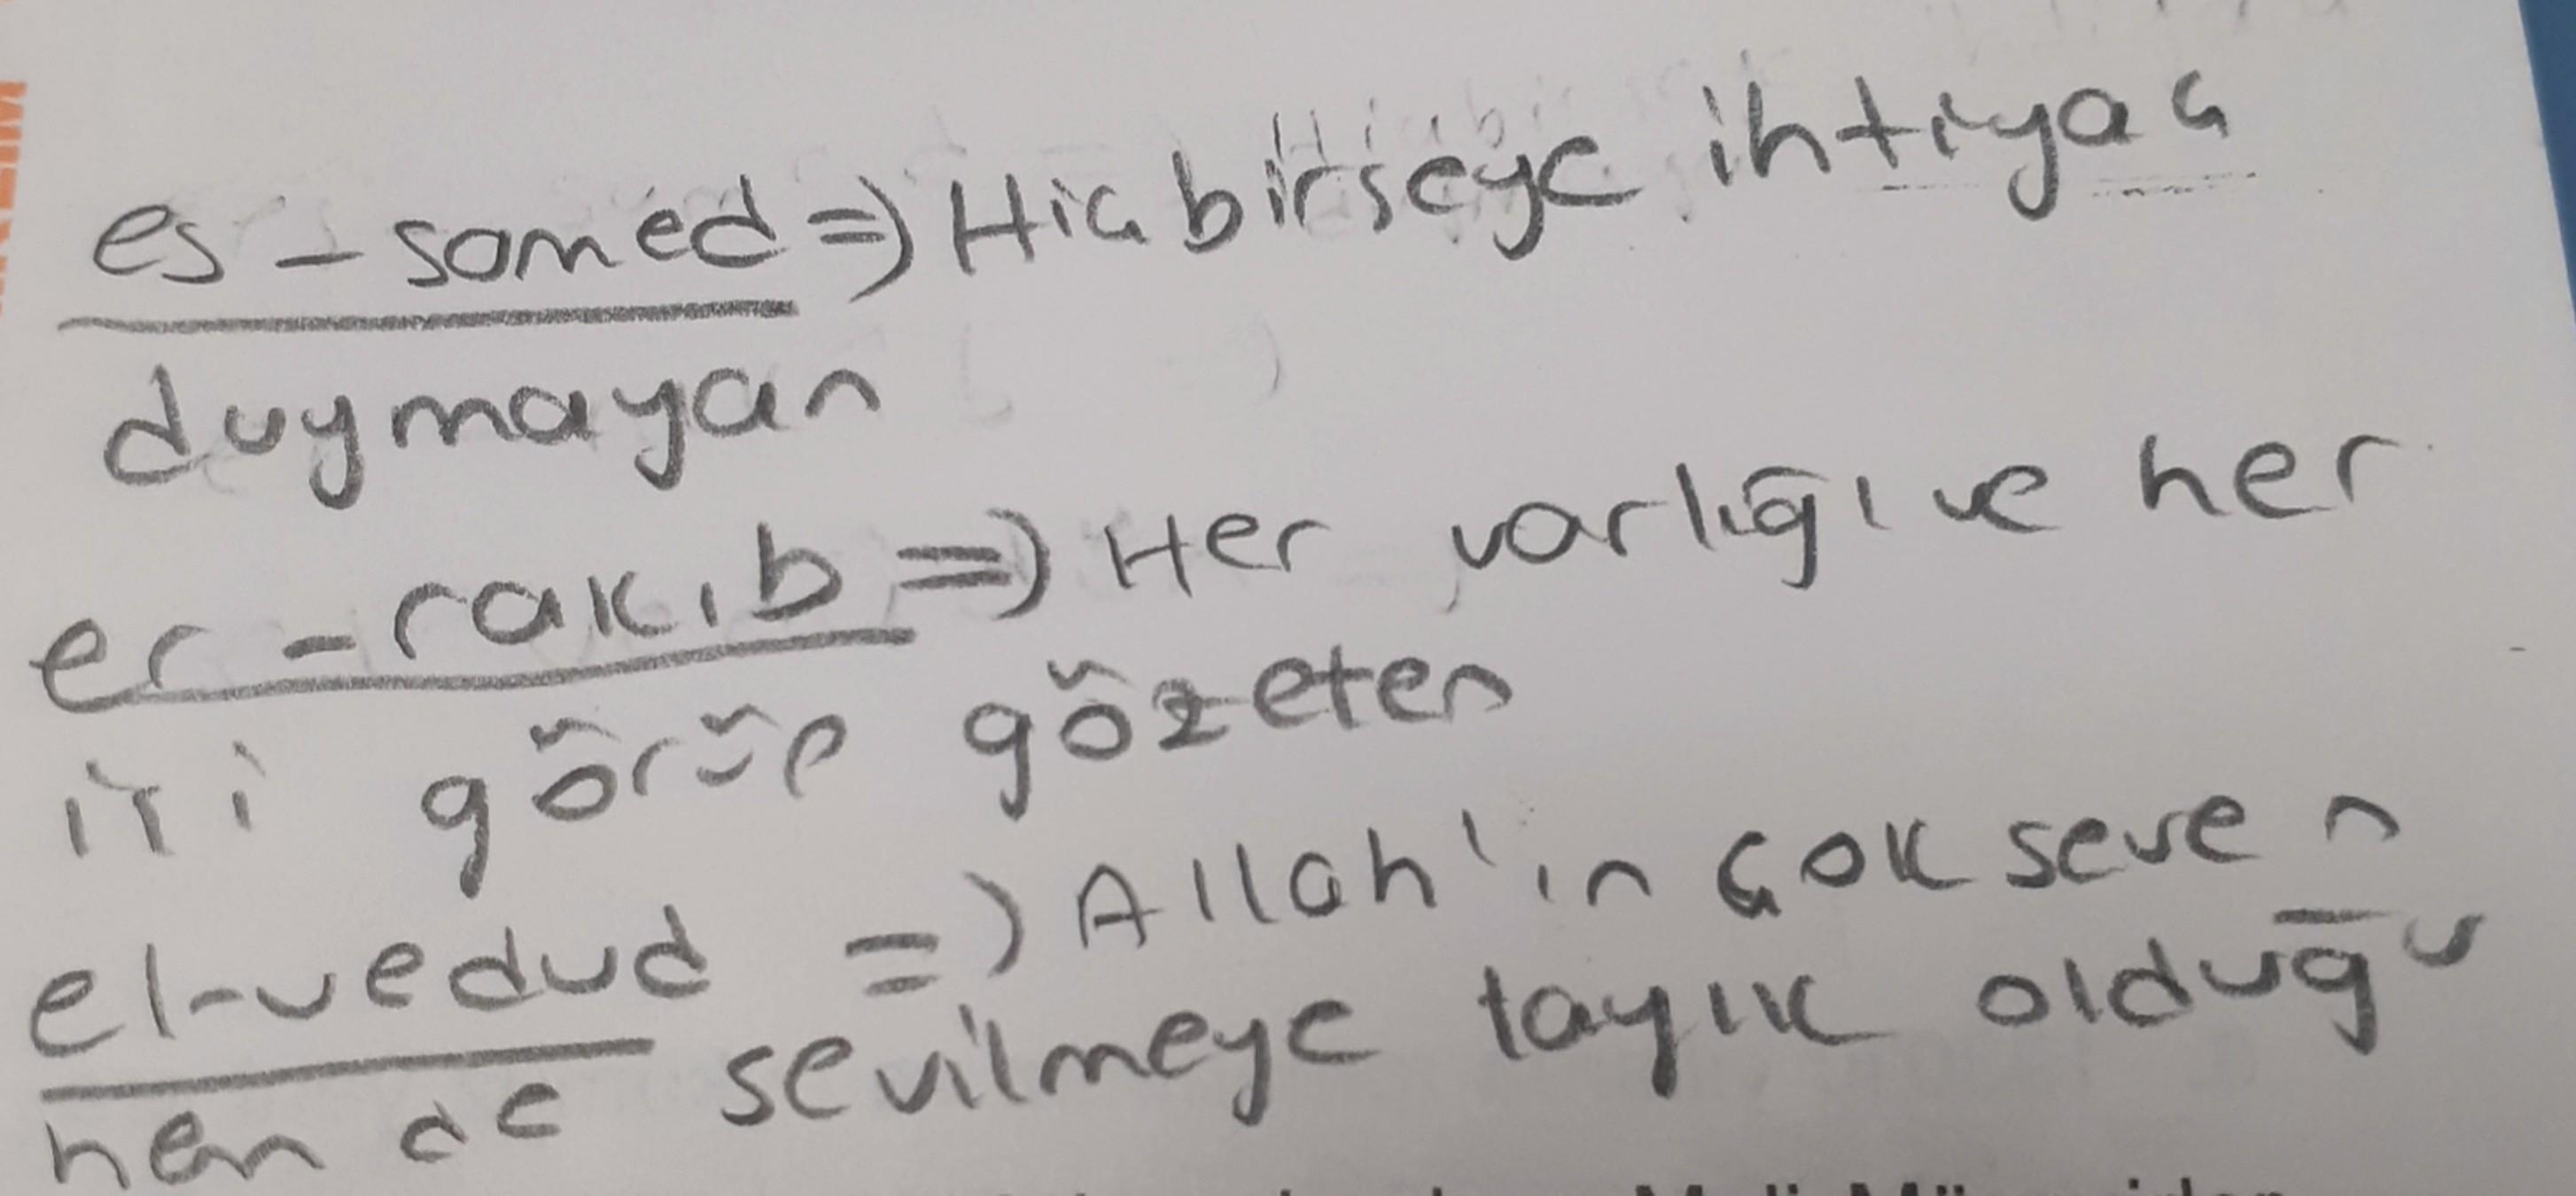 es - samed => Hiç birşeye ihtiyaç
duymayan
er - rakıb => Her varlığı ve her
işi görüp gözeten
el-vedud => Allah'ın çok seven
hem de sevilmeye layık olduğu